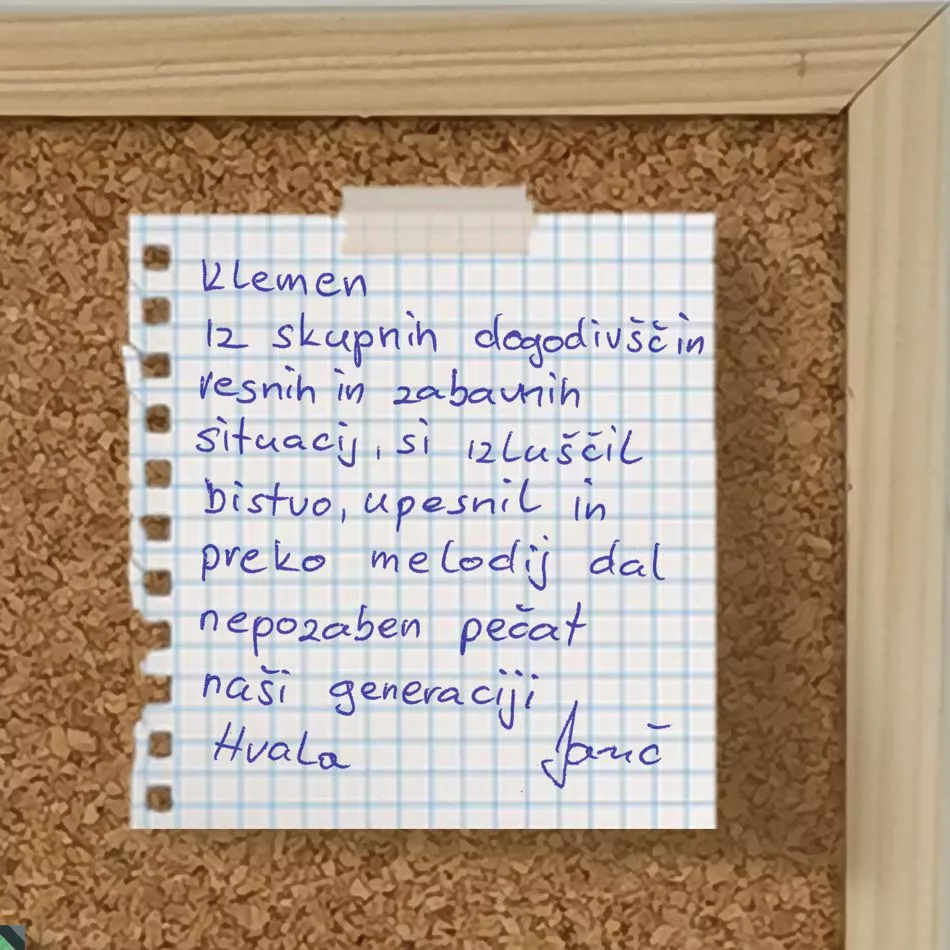 Klemen
Iz skupnih dogodivščin
resnih in zabavnih
situacij, si izluščil
bistvo, upesnil in
preko melodij dal
nepozaben pečat
naši generaciji
Hvala